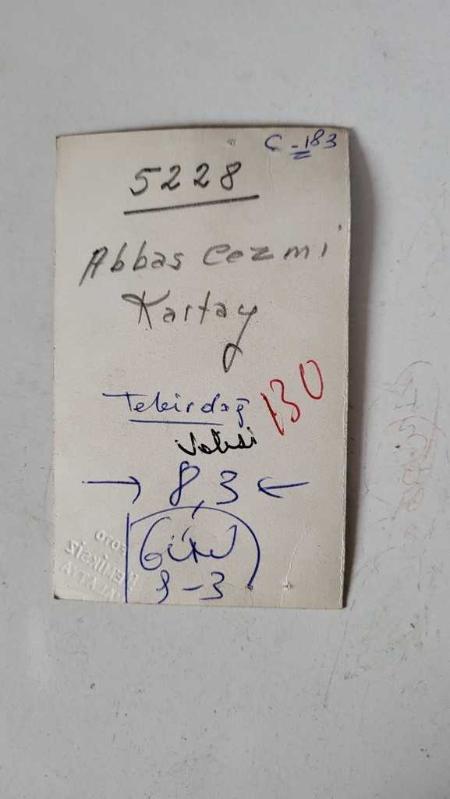 C-183
5228
Abbas Cezmi
Kartay
Tekirdağ
130
Valisi
→ 8,3 ←
9-3